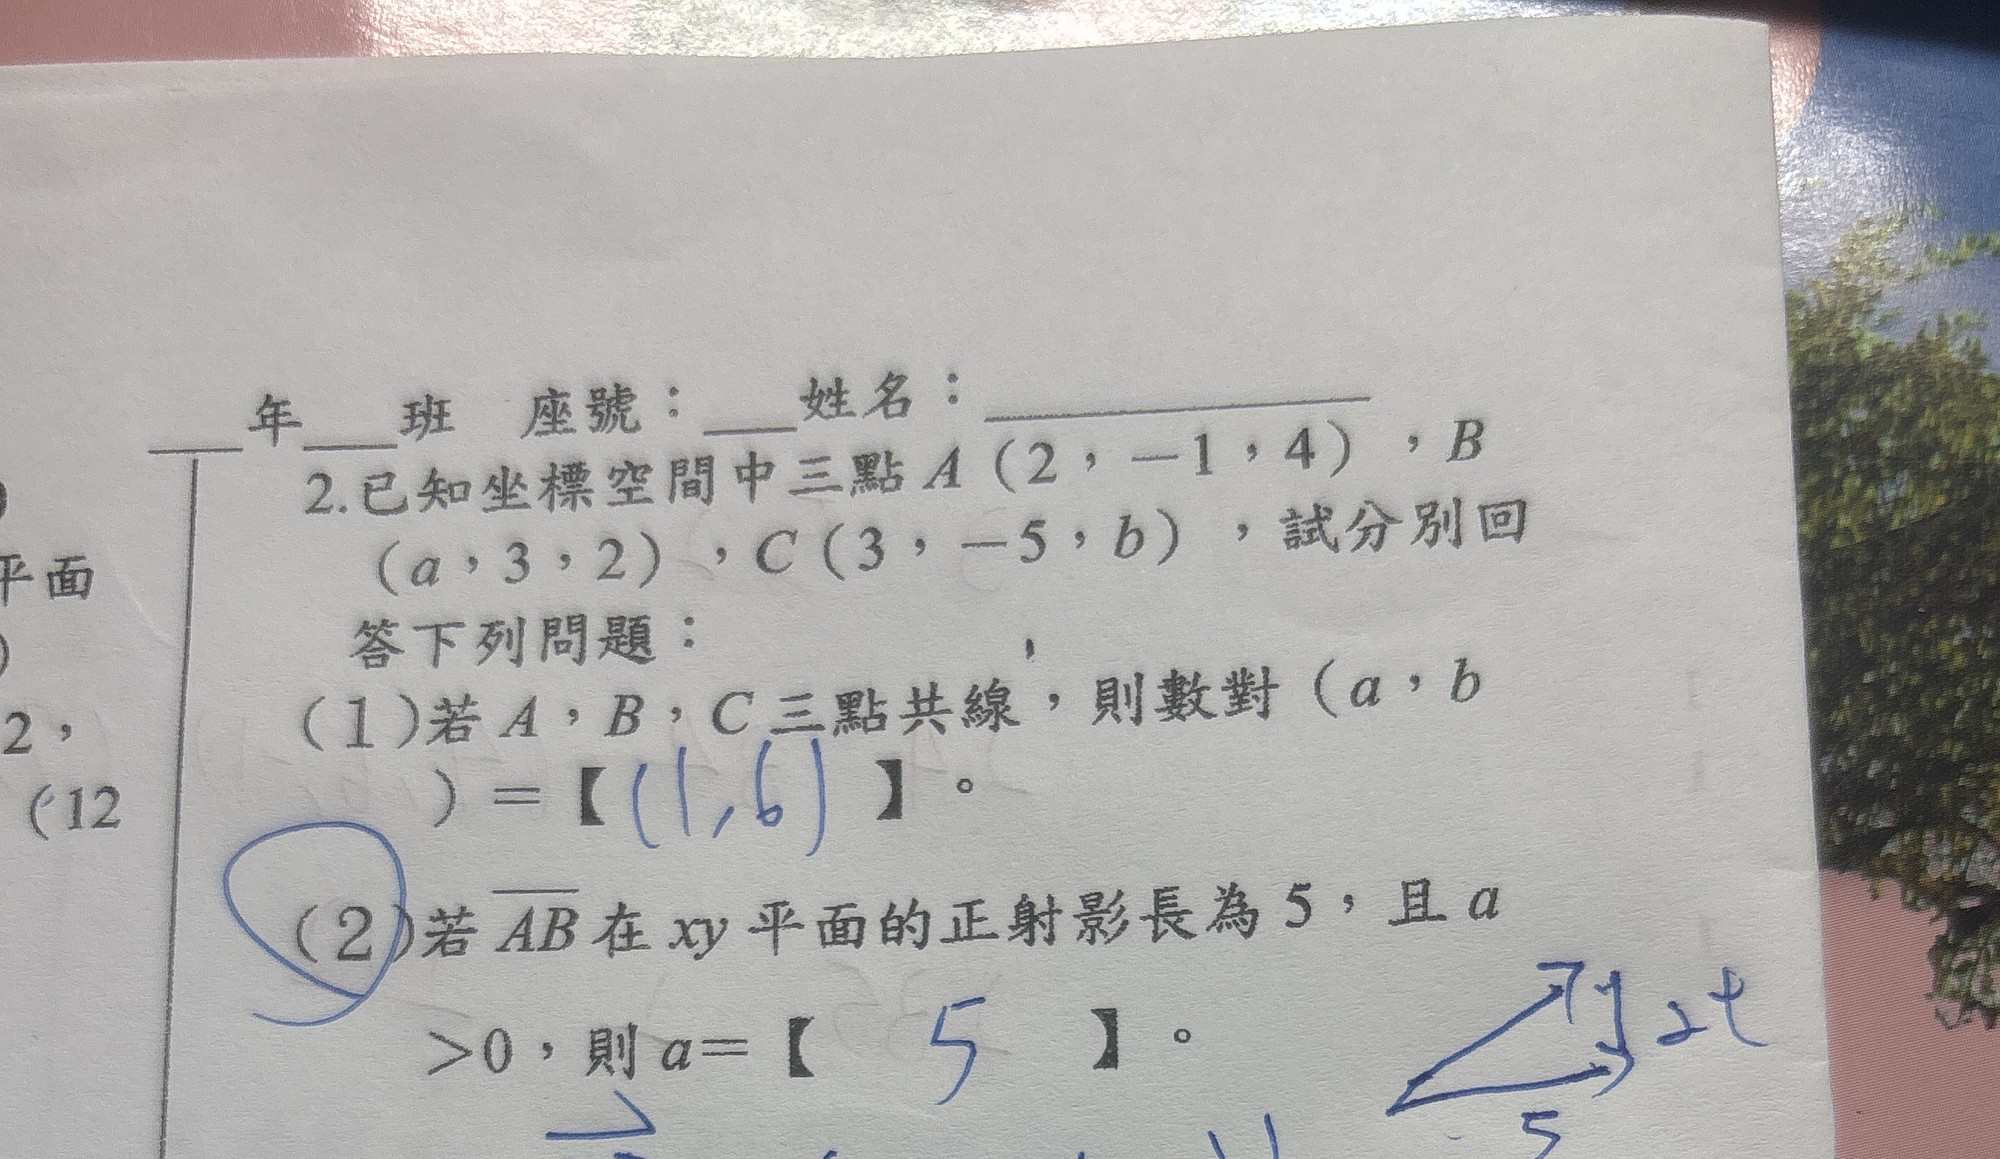 ___年___班 座號：___姓名：__________
2.已知坐標空間中三點 A（2，－1，4），B
（a，3，2），C（3，－5，b），試分別回
答下列問題：
(1)若 A，B，C 三點共線，則數對（a，b
）＝【(1,6)】。
(2)若 AB 在 xy 平面的正射影長為 5，且 a
>0，則 a＝【 5 】。
平面
2，
(12
2t
5